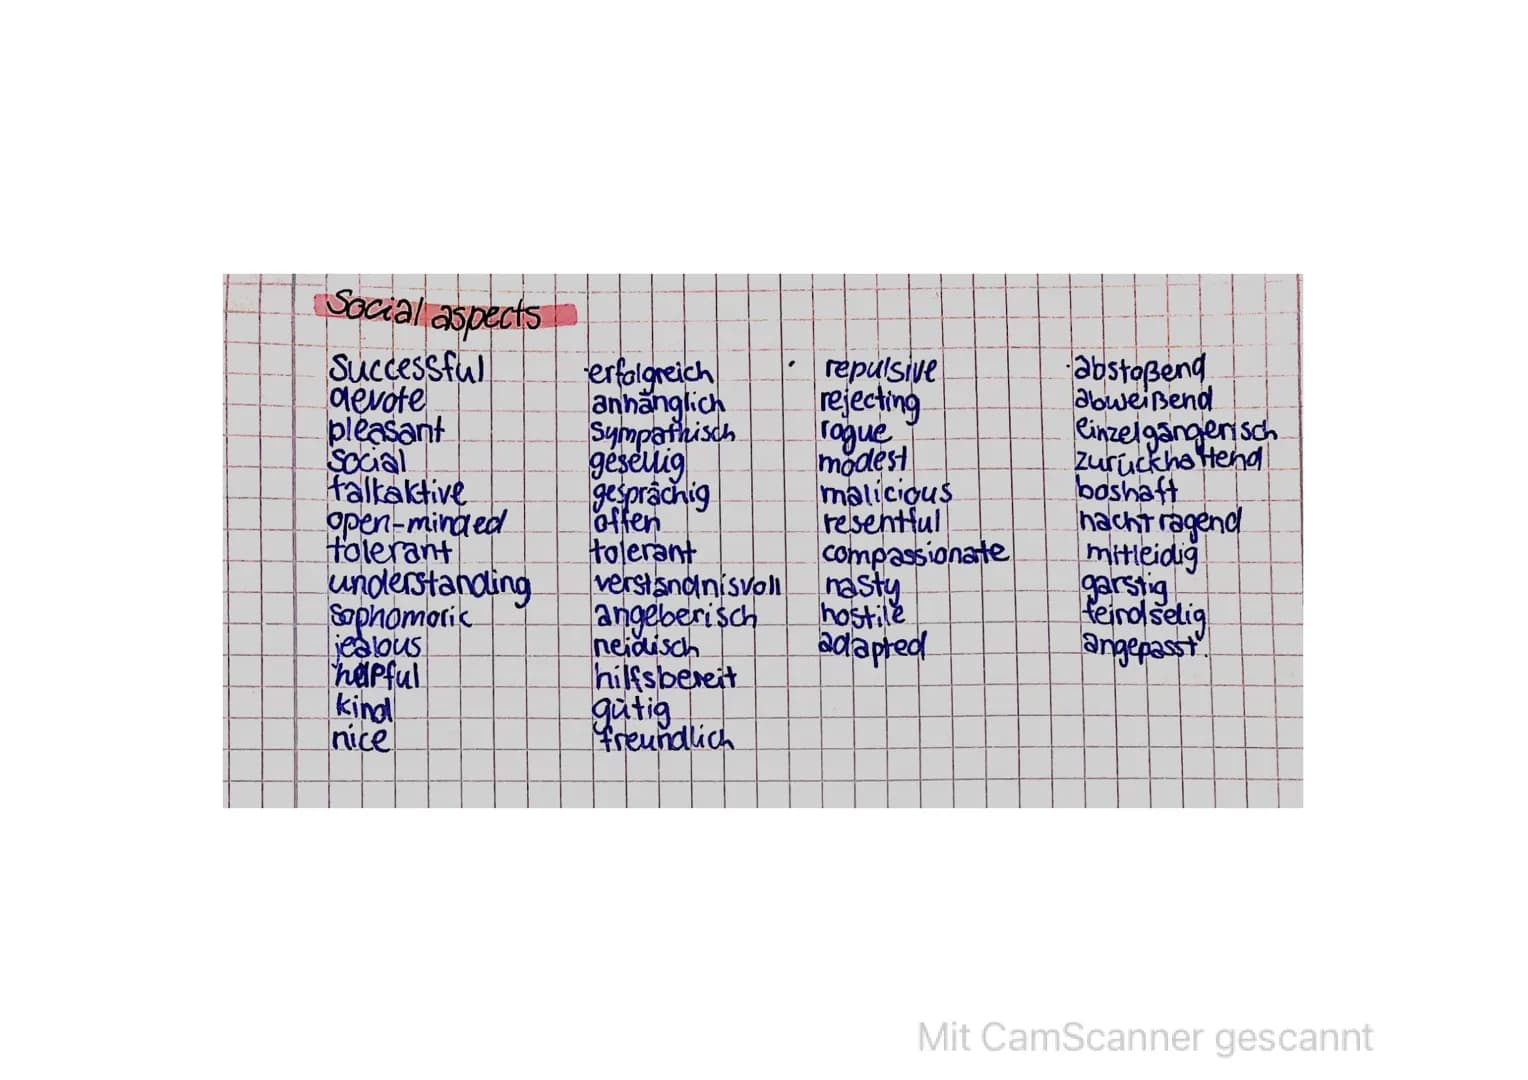 Social aspects
successful erfolgreich repulsive abstoßend
devote anhänglich rejecting abweißend
pleasant sympathisch rogue einzelgängerisch
social gesellig modest zurückhaltend
talkaktive gesprächig malicious boshaft
open-minded offen resentful nachtragend
tolerant tolerant compassionate mitleidig
understanding verständnisvoll nasty garstig
sophomoric angeberisch hostile feindselig
jealous neidisch adapted angepasst.
helpful hilfsbereit
kind gütig
nice freundlich
Mit CamScanner gescannt